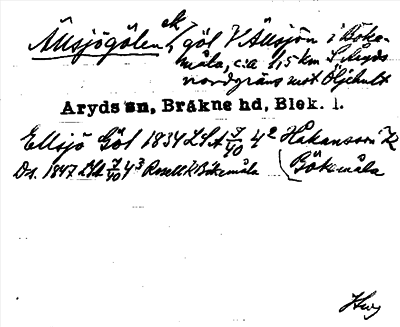 Ällsjögölen ek
göl V Ällsjön i Böke-
måla, c:a 1,5 km S Aryds
nordgräns mot Öljehult
Aryds sn, Bräkne hd, Blek. l.
Ellsjö Göl 1834 LSA 7/40 4² Håkansson K
Ds. 1847 LSA 7/40 4³ Rosell k Bökemåla
Bökemåla